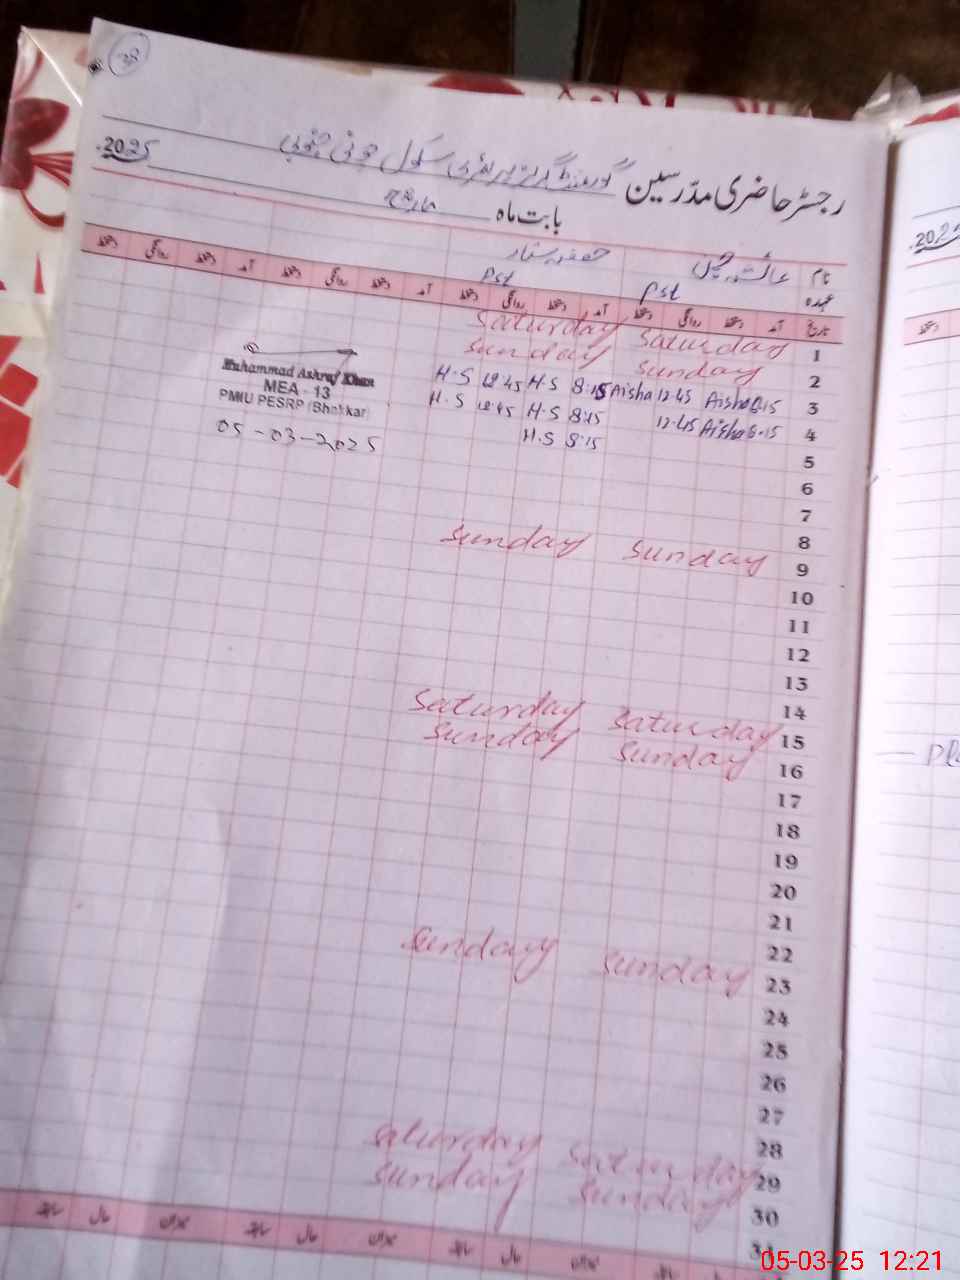 38
رجسٹر حاضری مدرسین گورنمنٹ گرلز پرائمری سکول جنوبی
2025
بابت ماہ مارچ
نام
عہدہ
Pst
Pst
تاریخ آمد دستخط روانگی دستخط آمد دستخط روانگی دستخط آمد دستخط روانگی دستخط آمد دستخط روانگی دستخط
1 Saturday Saturday
2 Sunday Sunday
3 8.15 Aisha 12.45 Aisha 8.15 H.S 12.45 H.S
4 8.15 Aisha 12.45 8.15 H.S 12.45 H.S
5 8.15 H.S
6
7
8
9 Sunday Sunday
10
11
12
13
14
15 Saturday Saturday
16 Sunday Sunday
17
18
19
20
21
22
23 Sunday Sunday
24
25
26
27
28
29 Saturday Saturday
30 Sunday Sunday
31
Muhammad Ashraf Khan
MEA - 13
PMIU PESRP (Bhakkar)
05-03-2025
2025
05-03-25 12:21